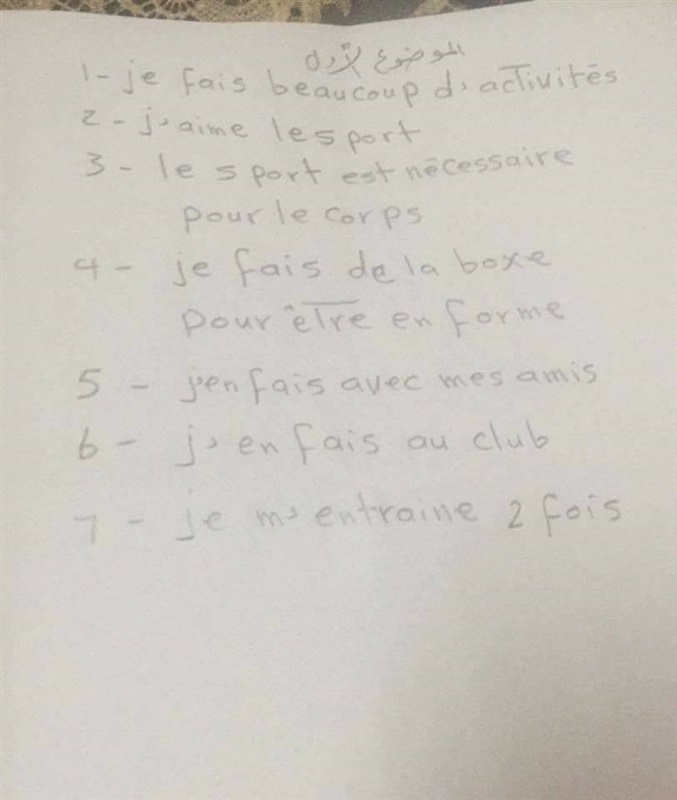 الموضوع الأول
1- je fais beaucoup d'activités
2 - j'aime le sport
3 - le sport est nécessaire
pour le corps
4 - je fais de la boxe
pour être en forme
5 - j'en fais avec mes amis
6 - j'en fais au club
7 - je m'entraine 2 fois